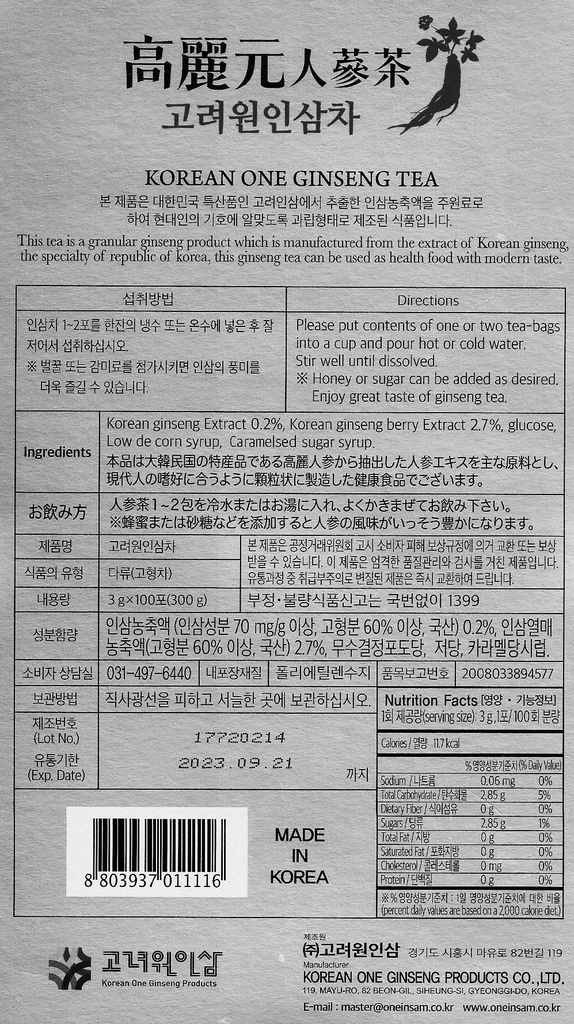 高麗元人蔘茶
고려원인삼차
KOREAN ONE GINSENG TEA
본 제품은 대한민국 특산품인 고려인삼에서 추출한 인삼농축액을 주원료로
하여 현대인의 기호에 알맞도록 과립형태로 제조된 식품입니다.
This tea is a granular ginseng product which is manufactured from the extract of Korean ginseng,
the specialty of republic of korea, this ginseng tea can be used as health food with modern taste.
섭취방법
인삼차 1~2포를 한잔의 냉수 또는 온수에 넣은 후 잘
저어서 섭취하십시오.
※ 벌꿀 또는 감미료를 첨가시키면 인삼의 풍미를
더욱 즐길 수 있습니다.
Directions
Please put contents of one or two tea-bags
into a cup and pour hot or cold water.
Stir well until dissolved.
※ Honey or sugar can be added as desired.
Enjoy great taste of ginseng tea.
Ingredients
Korean ginseng Extract 0.2%, Korean ginseng berry Extract 2.7%, glucose,
Low de corn syrup, Caramelsed sugar syrup.
本品は大韓民国の特産品である高麗人参から抽出した人参エキスを主な原料とし、
現代人の嗜好に合うように顆粒状に製造した健康食品でございます。
お飲み方
人参茶1~2包を冷水またはお湯に入れ、よくかきまぜてお飲み下さい。
※蜂蜜または砂糖などを添加すると人参の風味がいっそう豊かになります。
제품명 고려원인삼차
식품의 유형 다류(고형차)
본 제품은 공정거래위원회 고시 소비자 피해 보상규정에 의거 교환 또는 보상
받을 수 있습니다. 이 제품은 엄격한 품질관리와 검사를 거친 제품입니다.
유통과정 중 취급부주의로 변질된 제품은 즉시 교환하여 드립니다.
내용량 3 g×100포(300 g) 부정·불량식품신고는 국번없이 1399
성분함량
인삼농축액 (인삼성분 70 mg/g 이상, 고형분 60% 이상, 국산) 0.2%, 인삼열매
농축액(고형분 60% 이상, 국산) 2.7%, 무수결정포도당, 저당, 카라멜당시럽.
소비자 상담실 031-497-6440 내포장재질 폴리에틸렌수지 품목보고번호 2008033894577
보관방법 직사광선을 피하고 서늘한 곳에 보관하십시오.
제조번호
(Lot No.)
17720214
유통기한
(Exp. Date)
2023.09.21
까지
Nutrition Facts [영양·기능정보]
1회 제공량(serving size): 3 g ,1포/ 100회 분량
Calories / 열량 11.7 kcal
% 영양성분기준치 (% Daily Value)
Sodium / 나트륨 0.06 mg 0%
Total Carbohydrate / 탄수화물 2.85 g 5%
Dietary Fiber / 식이섬유 0 g 0%
Sugars / 당류 2.85 g 1%
Total Fat / 지방 0 g 0%
Saturated Fat / 포화지방 0 g 0%
Cholesterol / 콜레스테롤 0 mg 0%
Protein / 단백질 0 g 0%
※ % 영양성분기준치 : 1일 영양성분기준치에 대한 비율
(percent daily values are based on a 2,000 calorie diet.)
8 803937 011116
MADE
IN
KOREA
고려원인삼
Korean One Ginseng Products
제조원
(주)고려원인삼 경기도 시흥시 마유로 82번길 119
Manufacturer
KOREAN ONE GINSENG PRODUCTS CO.,LTD.
119, MAYU-RO, 82 BEON-GIL, SIHEUNG-SI, GYEONGGI-DO, KOREA
E-mail : master@oneinsam.co.kr www.oneinsam.co.kr